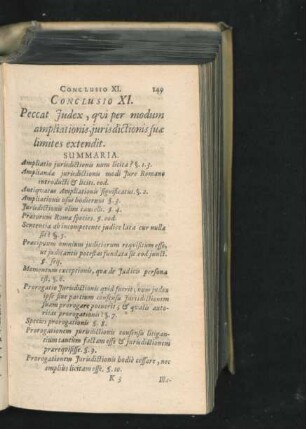 CONCLUSIO XI. 149
CONCLUSIO XI.
Peccat Judex, qvi per modum
ampliationis jurisdictionis suæ
limites extendit.
SUMMARIA.
Ampliatio jurisdictionis num licita? §. 1.7.
Ampliandæ jurisdictionis modi Jure Romano
introducti & liciti. eod.
Antiqvatus Ampliationis significatus. §. 2.
Ampliationis usus hodiernus §. 3.
Jurisdictionis olim §. 4.
Prætorum Romæ species. §. eod.
Sententia ab incompetente judice lata cur nulla
sit? §. 5.
Præcipuum omnium judiciorum reqvisitum esse,
ut judicanti potestas fundata sit eod. junct.
§. seq.
Momentum exceptionis, qvæ de Judicis persona
est, §. 6.
Prorogatio Jurisdictionis qvid fuerit, num judex
ipse sine partium consensu Jurisdictionem
suam prorogare potuerit, & qvalis auto-
ritas prorogationis? §. 7.
Species prorogationis §. 8.
Prorogationem jurisdictionis consensu litigan-
tium tantum factam esse & jurisdictionem
præreqvisisse. §. 9.
Prorogationem Jurisdictionis hodiè cessare, nec
amplius licitam esse. §. 10.
K 3